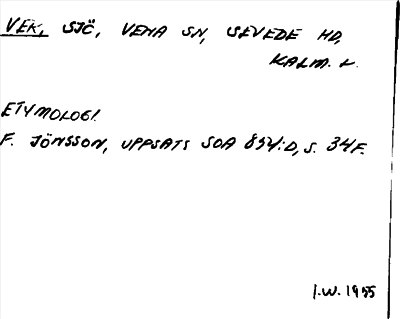 VEK, SJÖ, VENA SN, SEVEDE HD,
KALM. L.
ETYMOLOGI.
F. JÖNSSON, UPPSATS SOA 854:D, S. 34 F.
I.W. 1955